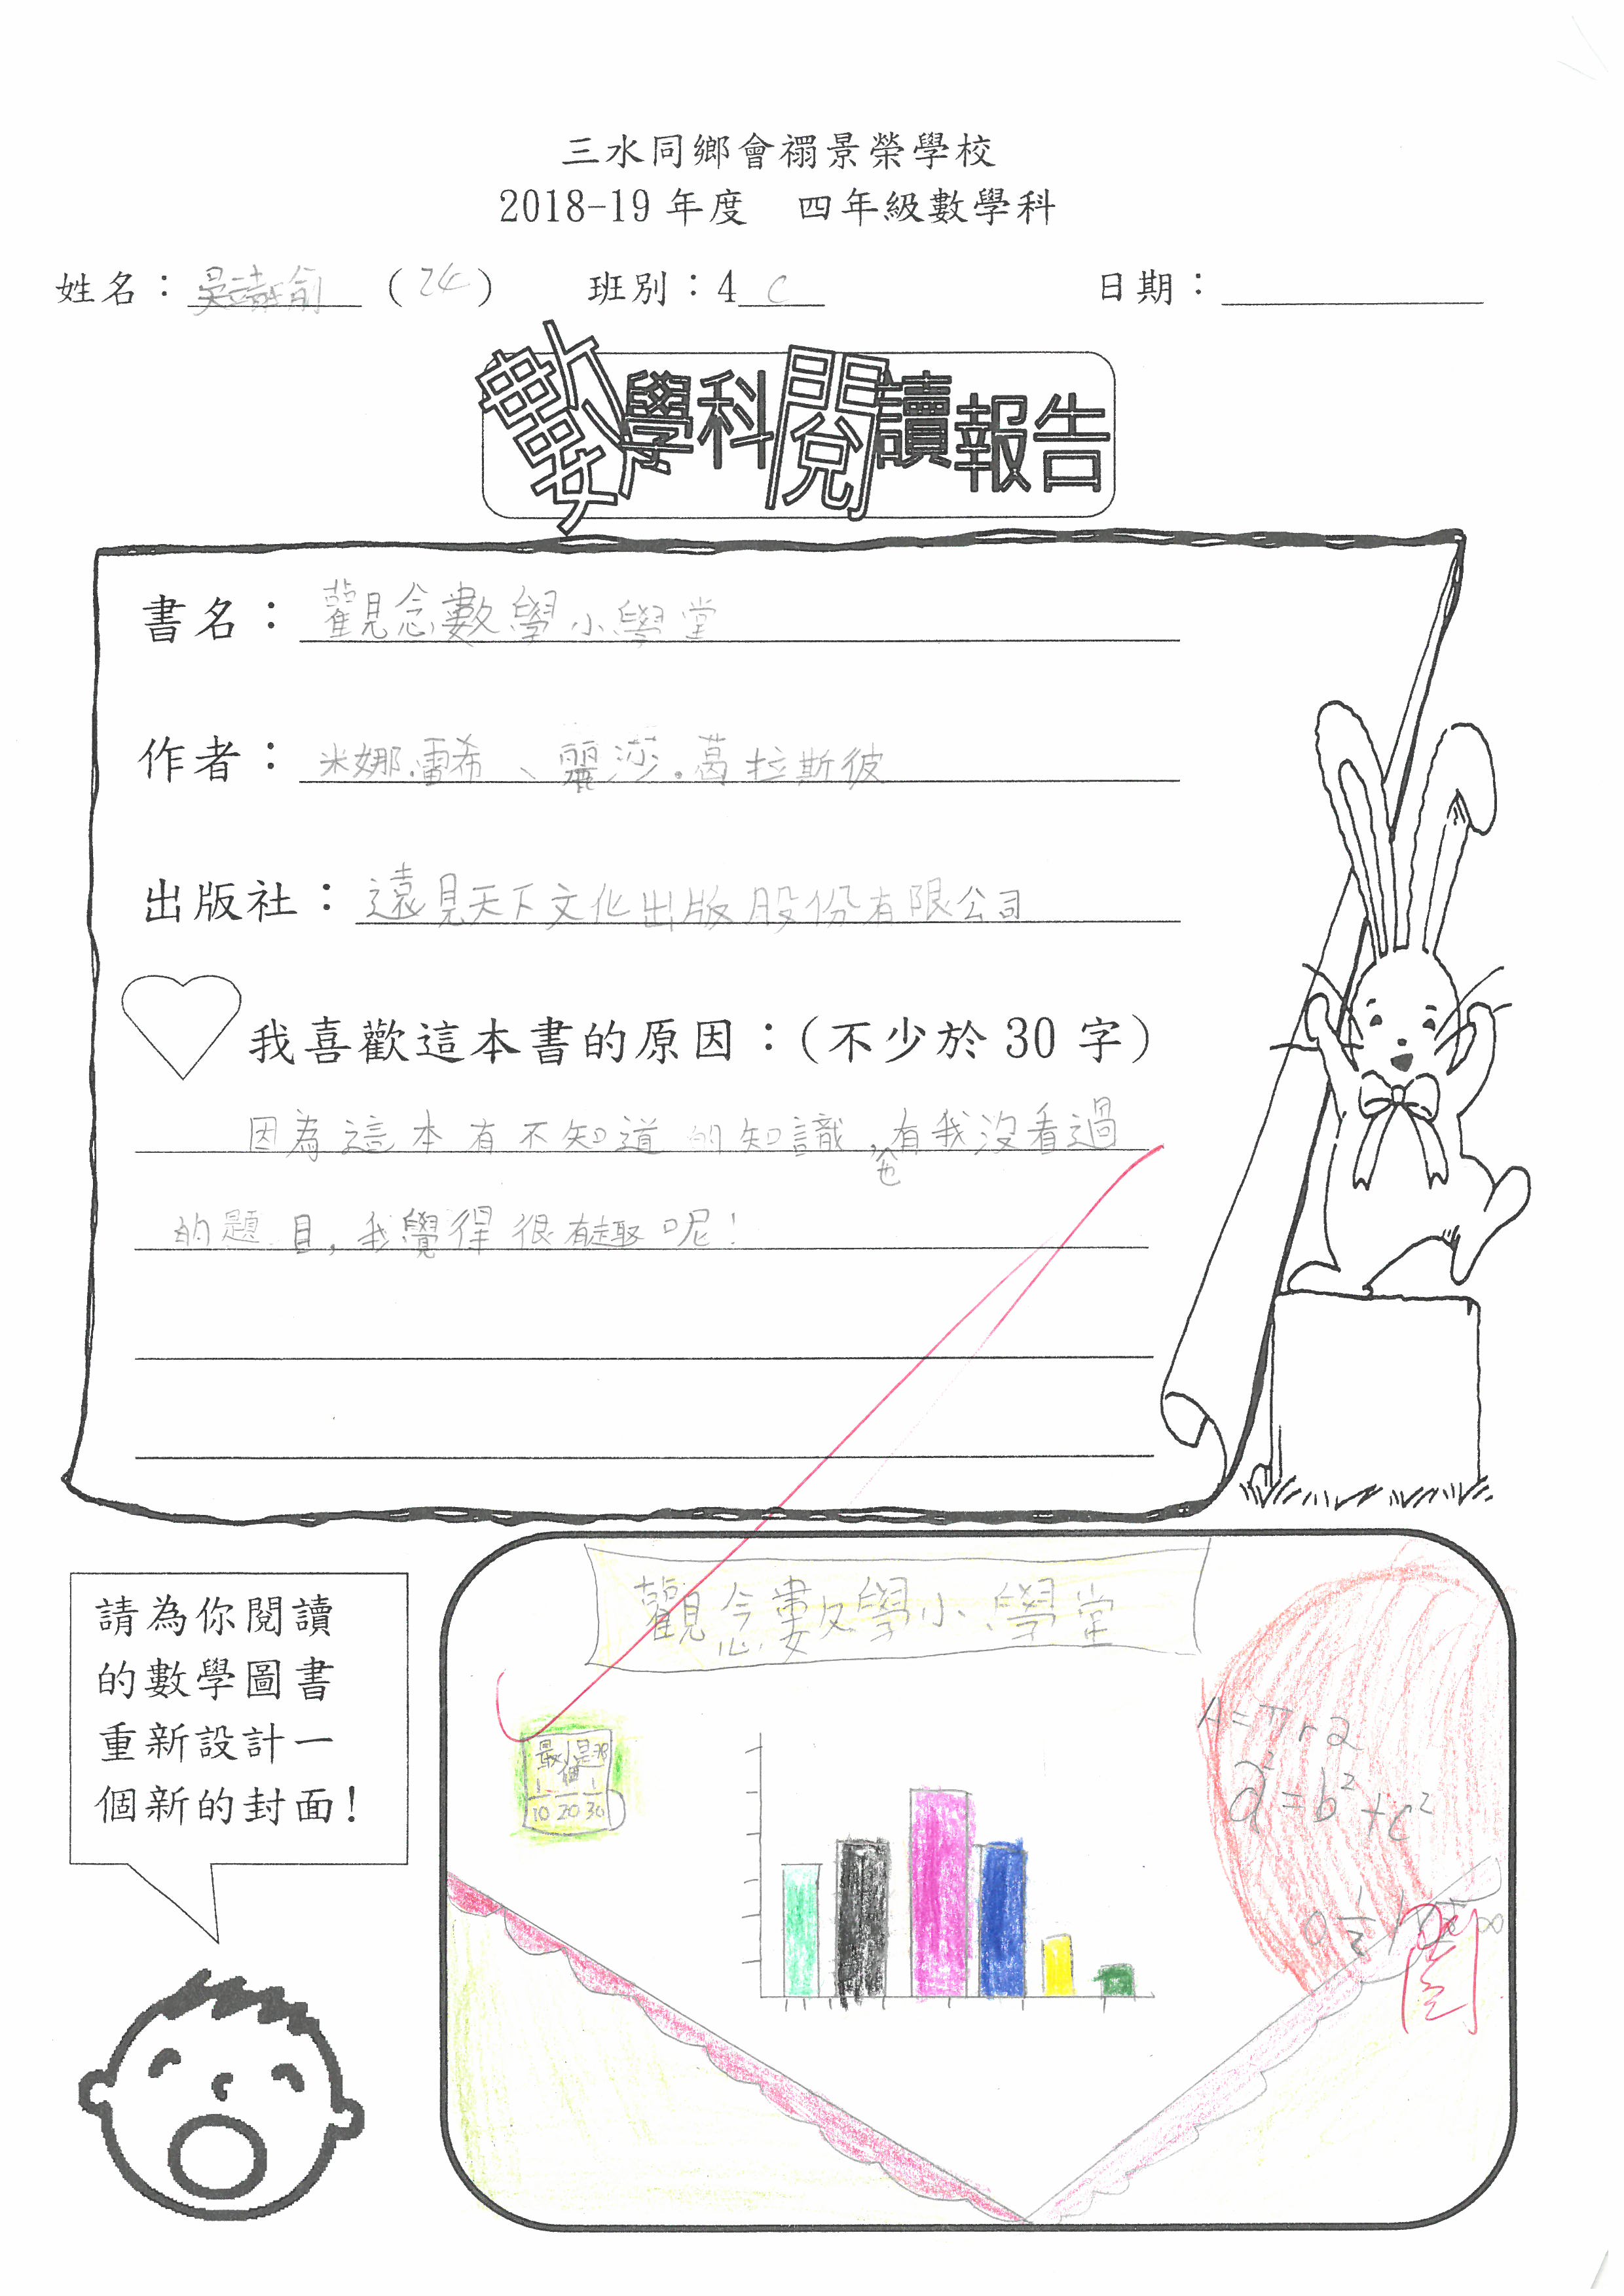 三水同鄉會禤景榮學校
2018-19 年度 四年級數學科
姓名：吳靖喻 (24) 班別：4 C 日期：
數學科閱讀報告
書名：觀念數學小學堂
作者：米娜.雷希、麗莎.葛拉斯彼
出版社：遠見天下文化出版股份有限公司
我喜歡這本書的原因：(不少於 30 字)
因為這本有不知道的知識，也有我沒看過
的題目，我覺得很有趣呢！
觀念數學小學堂
請為你閱讀
的數學圖書
重新設計一
個新的封面！
最小是
個
10 20 30
A=πr2
a²=b²+c²
0 1/2
閱